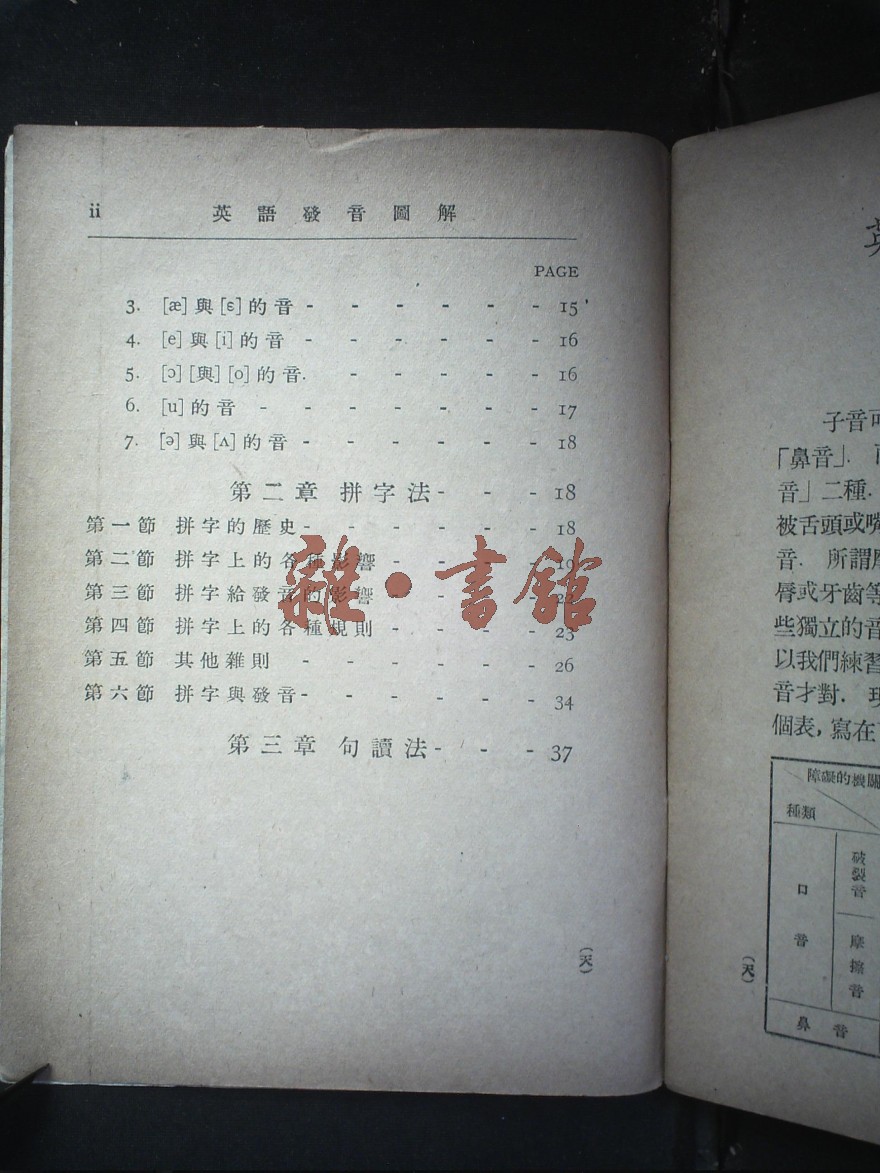 ii 英語發音圖解
PAGE
3. [æ]與[ɛ]的音 - - - - - - 15
4. [e]與[i]的音 - - - - - - 16
5. [ɔ][與][o]的音. - - - - - 16
6. [u]的音 - - - - - - - 17
7. [ə]與[ʌ]的音 - - - - - - 18
第二章 拼字法 - - - 18
第一節 拼字的歷史 - - - - - - 18
第二節 拼字上的各種影響 - - - - 19
第三節 拼字給發音的影響 - - - -
第四節 拼字上的各種規則 - - - - 23
第五節 其他雜則 - - - - - - 26
第六節 拼字與發音 - - - - - - 34
第三章 句讀法 - - - 37
(天)
雜·書館
子音
「鼻音」.
音」二種.
被舌頭或嘴
音. 所謂
脣或牙齒等
些獨立的音
以我們練習
音才對.
個表, 寫在
障礙的機關
種類
口音
破裂音
摩擦音
鼻音
(天)